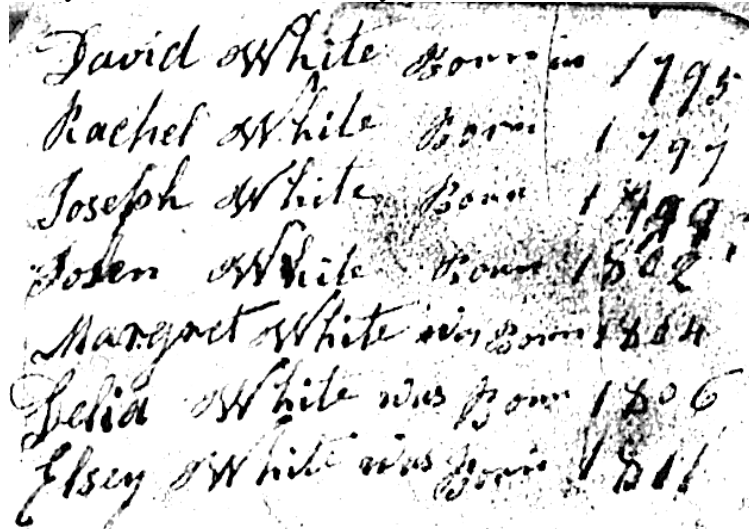 David White Born in 1795
Rachel White Born 1797
Joseph White Born 1799
John White Born 1802
Margret White was Born 1804
Lelia White was Born 1806
Elsey White was Born 1811